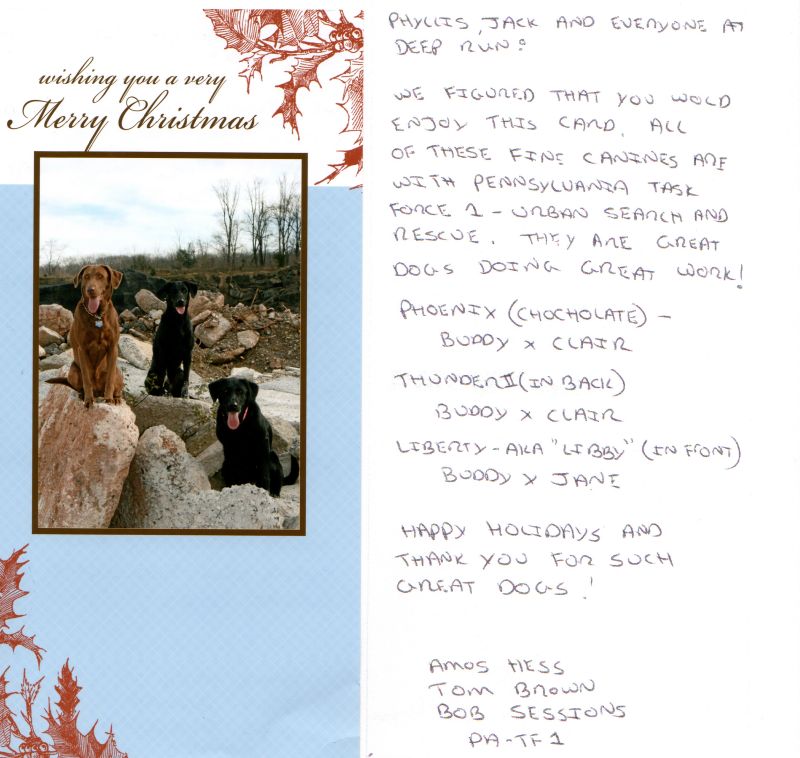 wishing you a very
Merry Christmas
PHYLLIS, JACK AND EVERYONE AT
DEEP RUN:
WE FIGURED THAT YOU WOLD
ENJOY THIS CARD. ALL
OF THESE FINE CANINES ARE
WITH PENNSYLVANIA TASK
FORCE 1 - URBAN SEARCH AND
RESCUE. THEY ARE GREAT
DOGS DOING GREAT WORK!
PHOENIX (CHOCHOLATE) -
BUDDY x CLAIR
THUNDER II (IN BACK)
BUDDY x CLAIR
LIBERTY - AKA "LIBBY" (IN FRONT)
BUDDY x JANE
HAPPY HOLIDAYS AND
THANK YOU FOR SUCH
GREAT DOGS!
AMOS HESS
TOM BROWN
BOB SESSIONS
PA-TF1